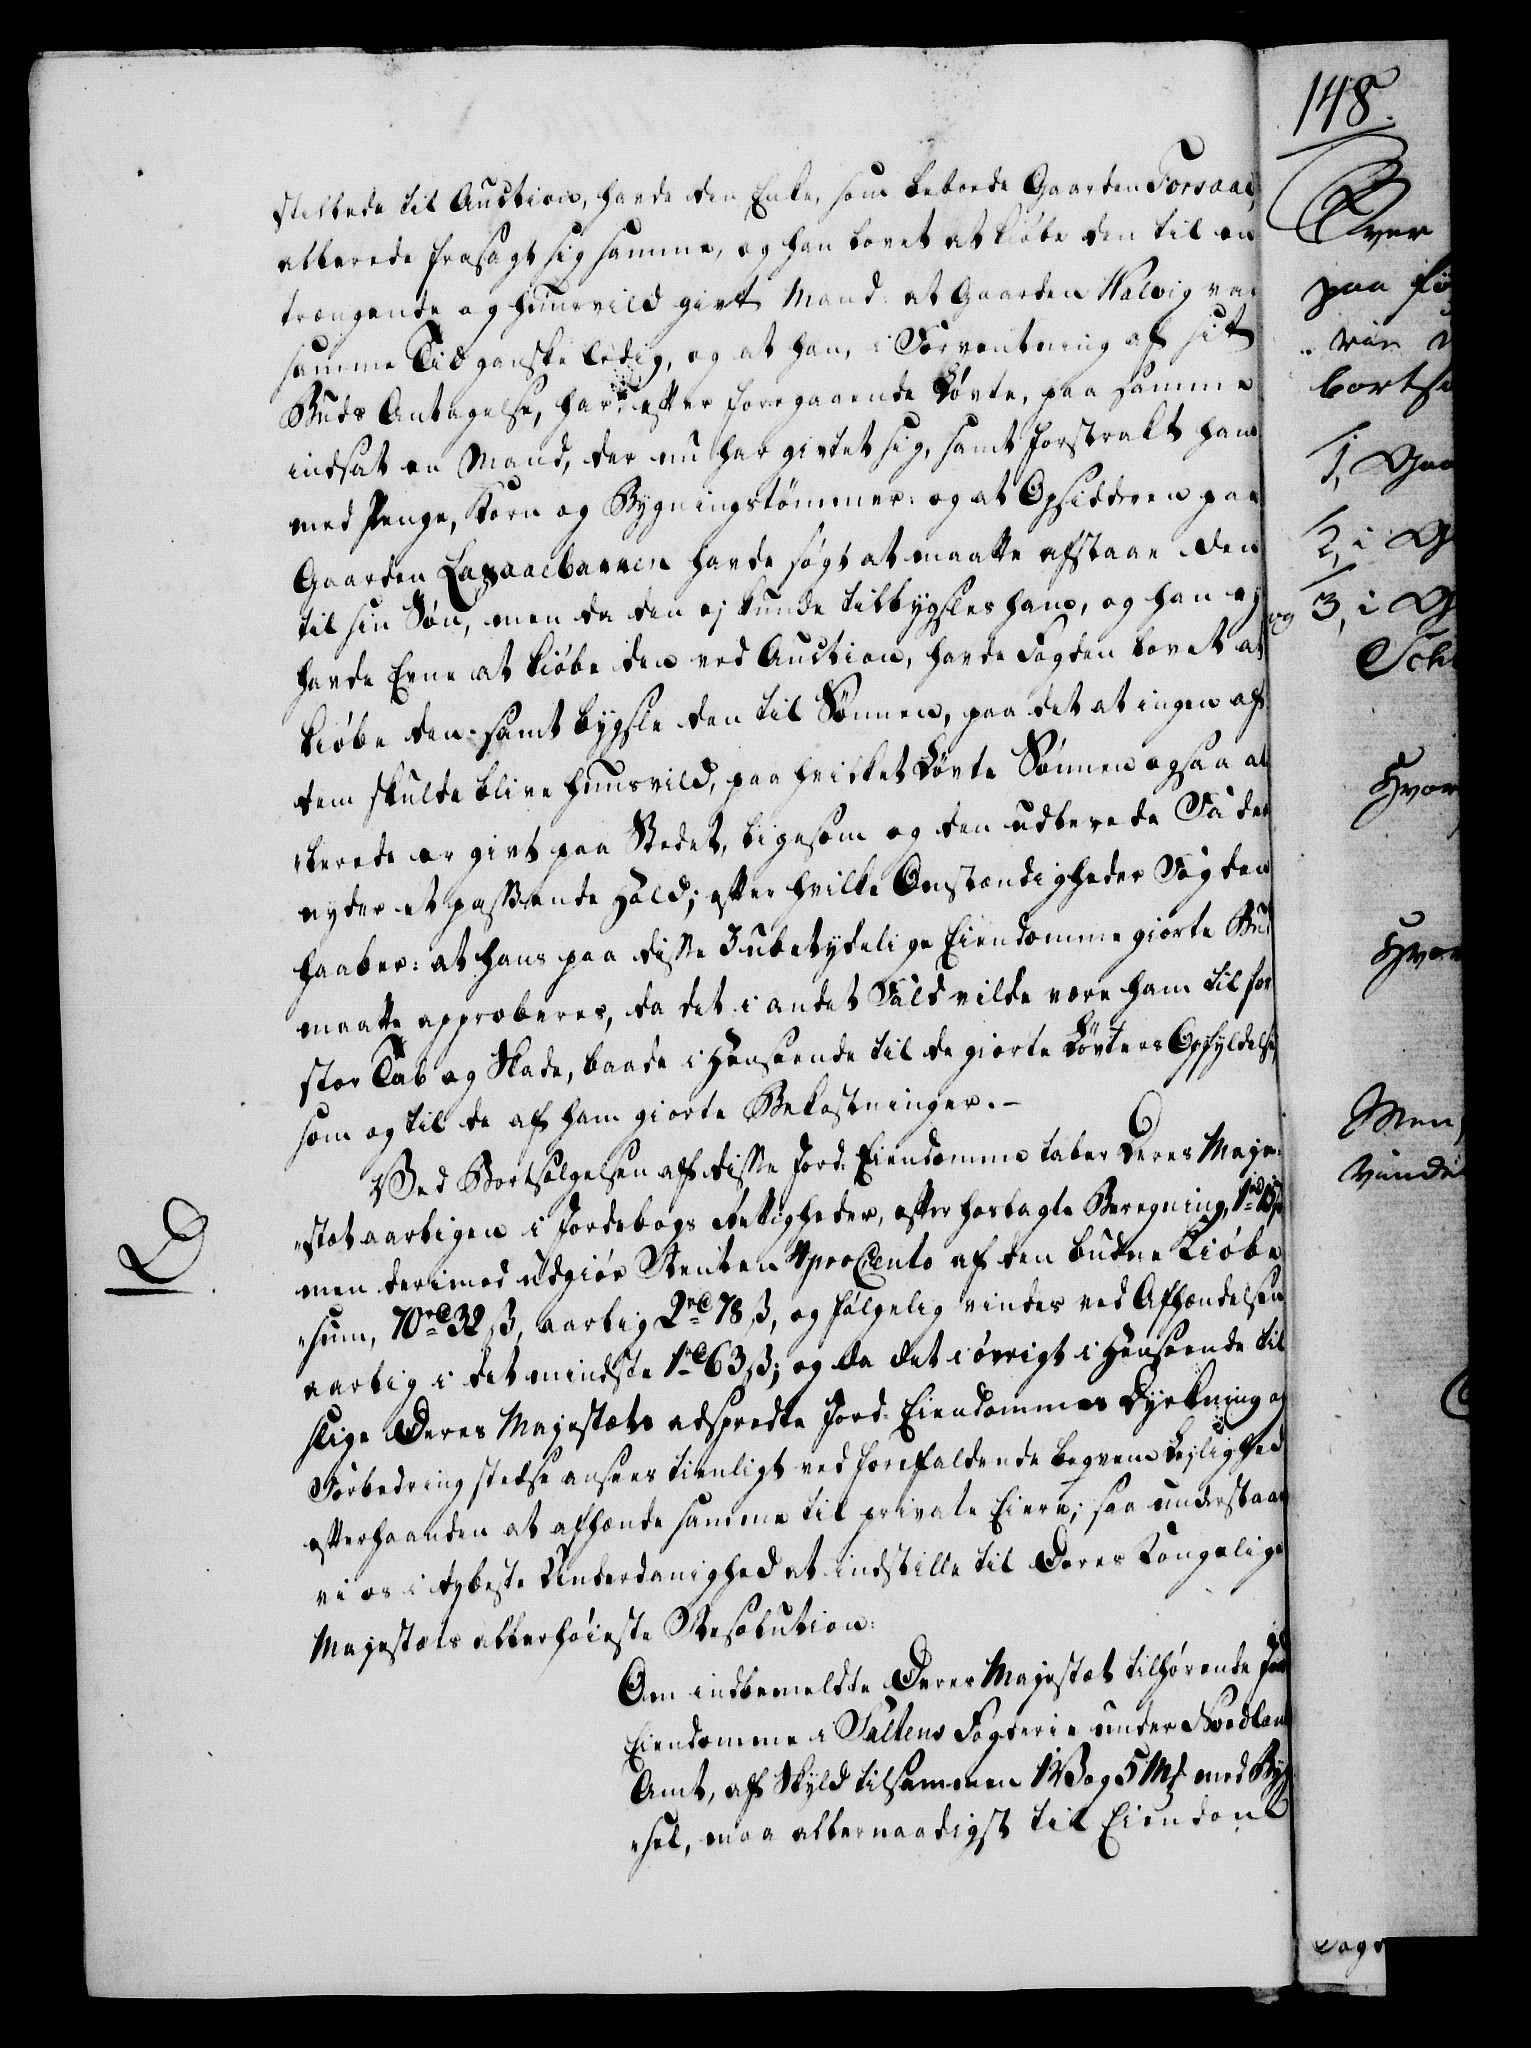 stillede til Auction, havde den Enke, som beboede Gaarden Forsaae,
allerede frasagt sig samme, og han lovet at kiøbe den til en
trængende og huusvild givt Mand: at Gaarden Walvig var
samme Tid ganske ledig, og at han, i Forventning af sit
Buds Antagelse, har efter foregaaende Løvte, paa samme
indsat en Mand, der nu har givtet sig, samt forstrakt ham
med Penge, Korn og Bygningstömmer: og at Opsidderen paa
Gaarden havde søgt at maatte afstaae den
til sin Søn, men da den ej kunde tilbygsles ham, og han ej
havde Evne at kiöbe den ved Auction, havde Fogden lovet at
kiöbe den samt bygsle den til Sönnen, paa det at ingen af
dem skulde blive huusvild, paa hvilket Lövte Sönnen ogsaa al-
lerede er givt paa Stedet, ligesom og den udlevede Fader
nyder et passende Hold; efter hvilke Omstændigheder Fogden
haaber: at hans paa disse 3 ubetydelige Eiendomme giorte Bud
maatte approberes, da det i andet Fald vilde være ham til for
stor Tab og Skade, baade i Henseende til de giorte Lövters Opfyldelse,
som og til de af ham giorte Bekostninger.-
Ved Bortsælgelsen af disse Jord-Eiendomme taber Deres Maje-
stæt aarligen i Jordebogs Rettigheder, efter forlagte Beregning, 1rd 15 ß,
men derimod udgiör Renten 4 pro Cento af den budne Kiöbe-
sum, 70rd 32 ß, aarlig 2rd 78 ß, og fölgelig vindes ved Afhændelsen
aarlig i det mindste 1rd 63 ß; og da det i övrigt i Henseende til
slige Deres Majestæts adspredte Jord-Eiendommes Dyrkning og
Forbedring stedse ansees tienligt ved forefaldende beqvem Lejlighed
efterhaanden at afhænde samme til private Eiere; saa understaae
vi os i dybeste Underdanighed at indstille til Deres Kongelige
Majestæts allerhöieste Resolution:
Om indbemeldte Deres Majestæt tilhørende Jord
Eiendomme i Saltens Fogderie under Nordlands
Amt, af Skyld tilsammen 1 V og 5 Mk med Byg-
sel, maa allernaadigst til Eiendom
D
148.
Over
paa
bortse
1,
2, i
og 3, i
Men,
vunde